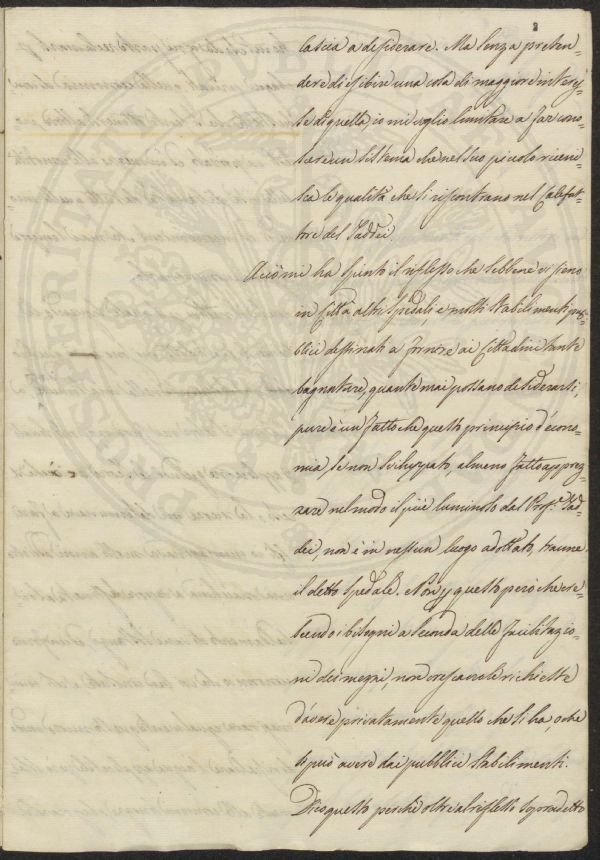 2
lascia a desiderare. Ma senza preten=
dere di esibire una cosa di maggiore interes=
se di quella, io mi voglio limitare a far cono=
scere un sistema che nel suo piccolo riceui=
sca le qualità che si riscontrano nel Calefat=
tore del Taddei.
A ciò mi ha spinto il riflesso che sebbene vi sieno
in Città altri Spedali, e molti Stabilimenti pub=
blici destinati a fornire ai Cittadini tante
bagnature, quante mai possano desiderarsi;
pure è un fatto che questo principio d'econo=
mia, se non sviluppato, almeno fatto apprez=
zare nel modo il più luminoso dal Prof.e Tad=
dei, non è in nessun luogo adottato, tranne
il detto Spedale. Non p questo però che cre=
scendo i bisogni a seconda delle facilitazio=
ni dei mezzi, non crescano le richieste
d'avere privatamente quello che si ha, o che
si può avere dai pubblici Stabilimenti.
Dico questo perchè oltre al riflesso sopradetto